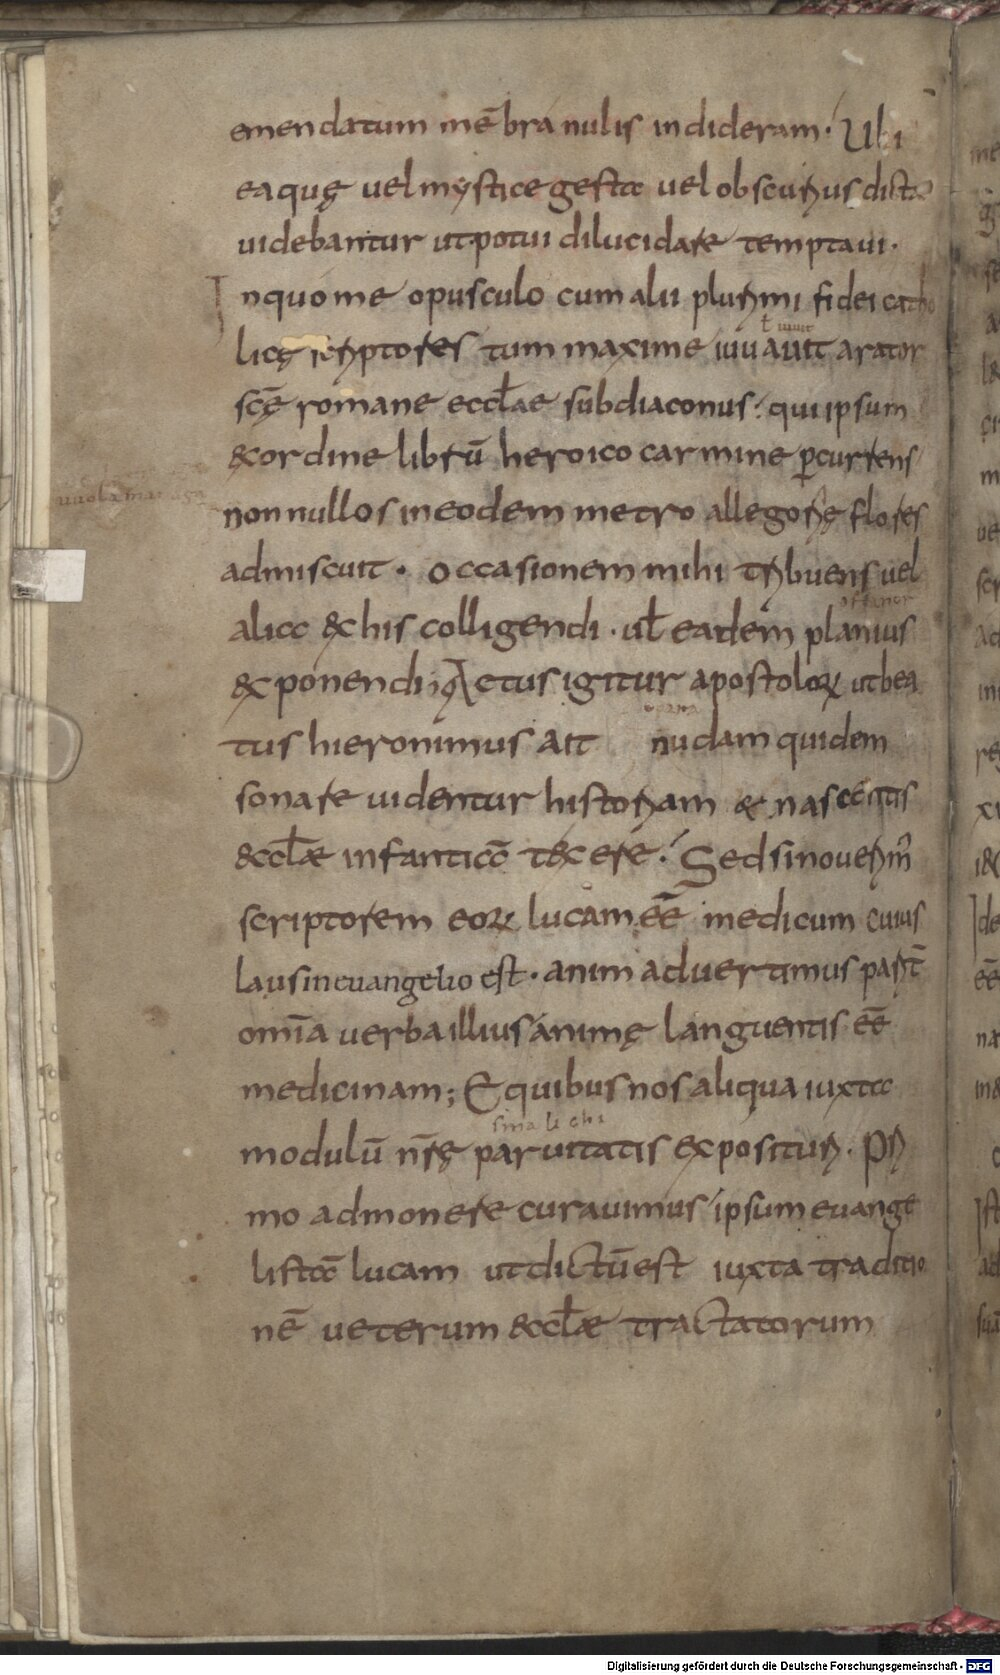 emendatum mē branulis indideram. Ubi
eaquę uel mystice gesta uel obscurius dicta
uidebantur ut potui dilucidare temptaui.
Inquo me opusculo cum alii plurimi fidei catho
licę scriptores tum maxime iuuauit arator
ł iuuit
scē romane eccłae subdiaconus. qui ipsum
&ordine librū heroico carmine p̄currens
non nullos ineodem metro allegorię flores
admiscuit. occasionem mihi tribuens uel
alia & his colligendi. uł eadem planius
offanor
exponendi; Actus igitur apostolorꝝ ut bea
tus hieronimus ait nudam quidem
sonare uidentur historiam & nascentis
&ccłæ infantiā t&ere. Sed si nouerim̄
scriptorem eorꝝ lucam eē medicum cuius
laus in euangelio est. animaduertimus parit̄
omīa uerba illius animę languentis eē
medicinam; E quibus nos aliqua iuxta
modulū nr̄ę paruitatis exposituri. Pri
smalichi
mo admonere curauimus ipsum euange
listā lucam ut dictū est iuxta traditio
nē ueterum &ccłæ tractatorum
Digitalisierung gefördert durch die Deutsche Forschungsgemeinschaft - DFG